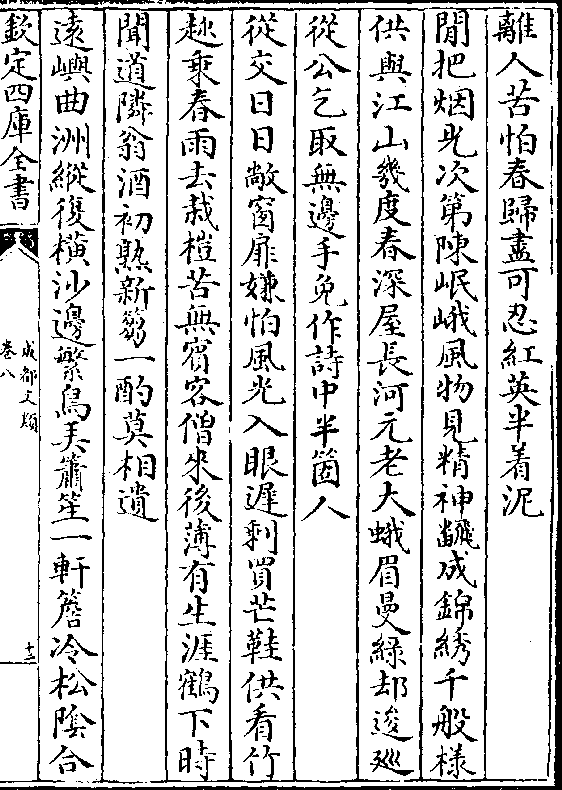 離人苦怕春歸盡可忍紅英半着泥
閒把烟光次第陳岷峨風物見精神翻成錦綉千般様
供與江山幾度春深屋長河元老大蛾眉曼緑却逡廵
從公乞取無邊手免作詩中半箇人
從交日日敞窗扉嫌怕風光入眼遲剩買芒鞋供看竹
趂乘春雨去栽榿苦無賓客僧來後薄有生涯鶴下時
聞道隣翁酒初熟新篘一酌莫相遺
逺嶼曲洲縱復横沙邊繁鳥美簫笙一軒簷冷松隂合
欽定四庫全書
成都文類
卷八
十二